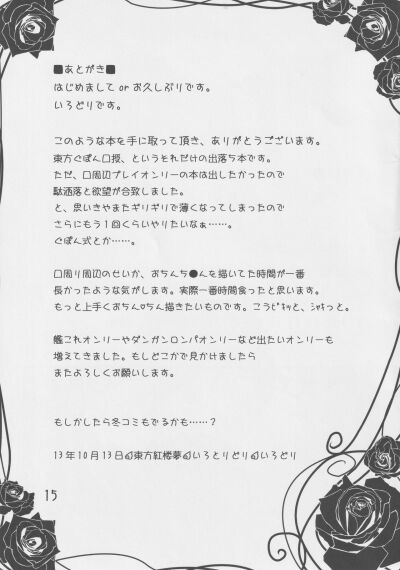 ■あとがき■
はじめまして or お久しぶりです。
いろどりです。
このような本を手に取って頂き、ありがとうございます。
東方ぐぽん口授、というそれだけの出落ち本です。
ただ、口周辺プレイオンリーの本は出したかったので
駄洒落と欲望が合致しました。
と、思いきやまたギリギリで薄くなってしまったので
さらにもう1回くらいやりたいなぁ……。
ぐぽん式とか……。
口周り周辺のせいか、おちんち●んを描いてた時間が一番
長かったような気がします。実際一番時間食ったと思います。
もっと上手くおちん○ちん描きたいものです。こうビキッと、シャキっと。
艦これオンリーやダンガンロンパオンリーなど出たいオンリーも
増えてきました。もしどこかで見かけましたら
またよろしくお願いします。
もしかしたら冬コミもでるかも……？
13年10月13日の東方紅楼夢のいろとりどりのいろどり
15